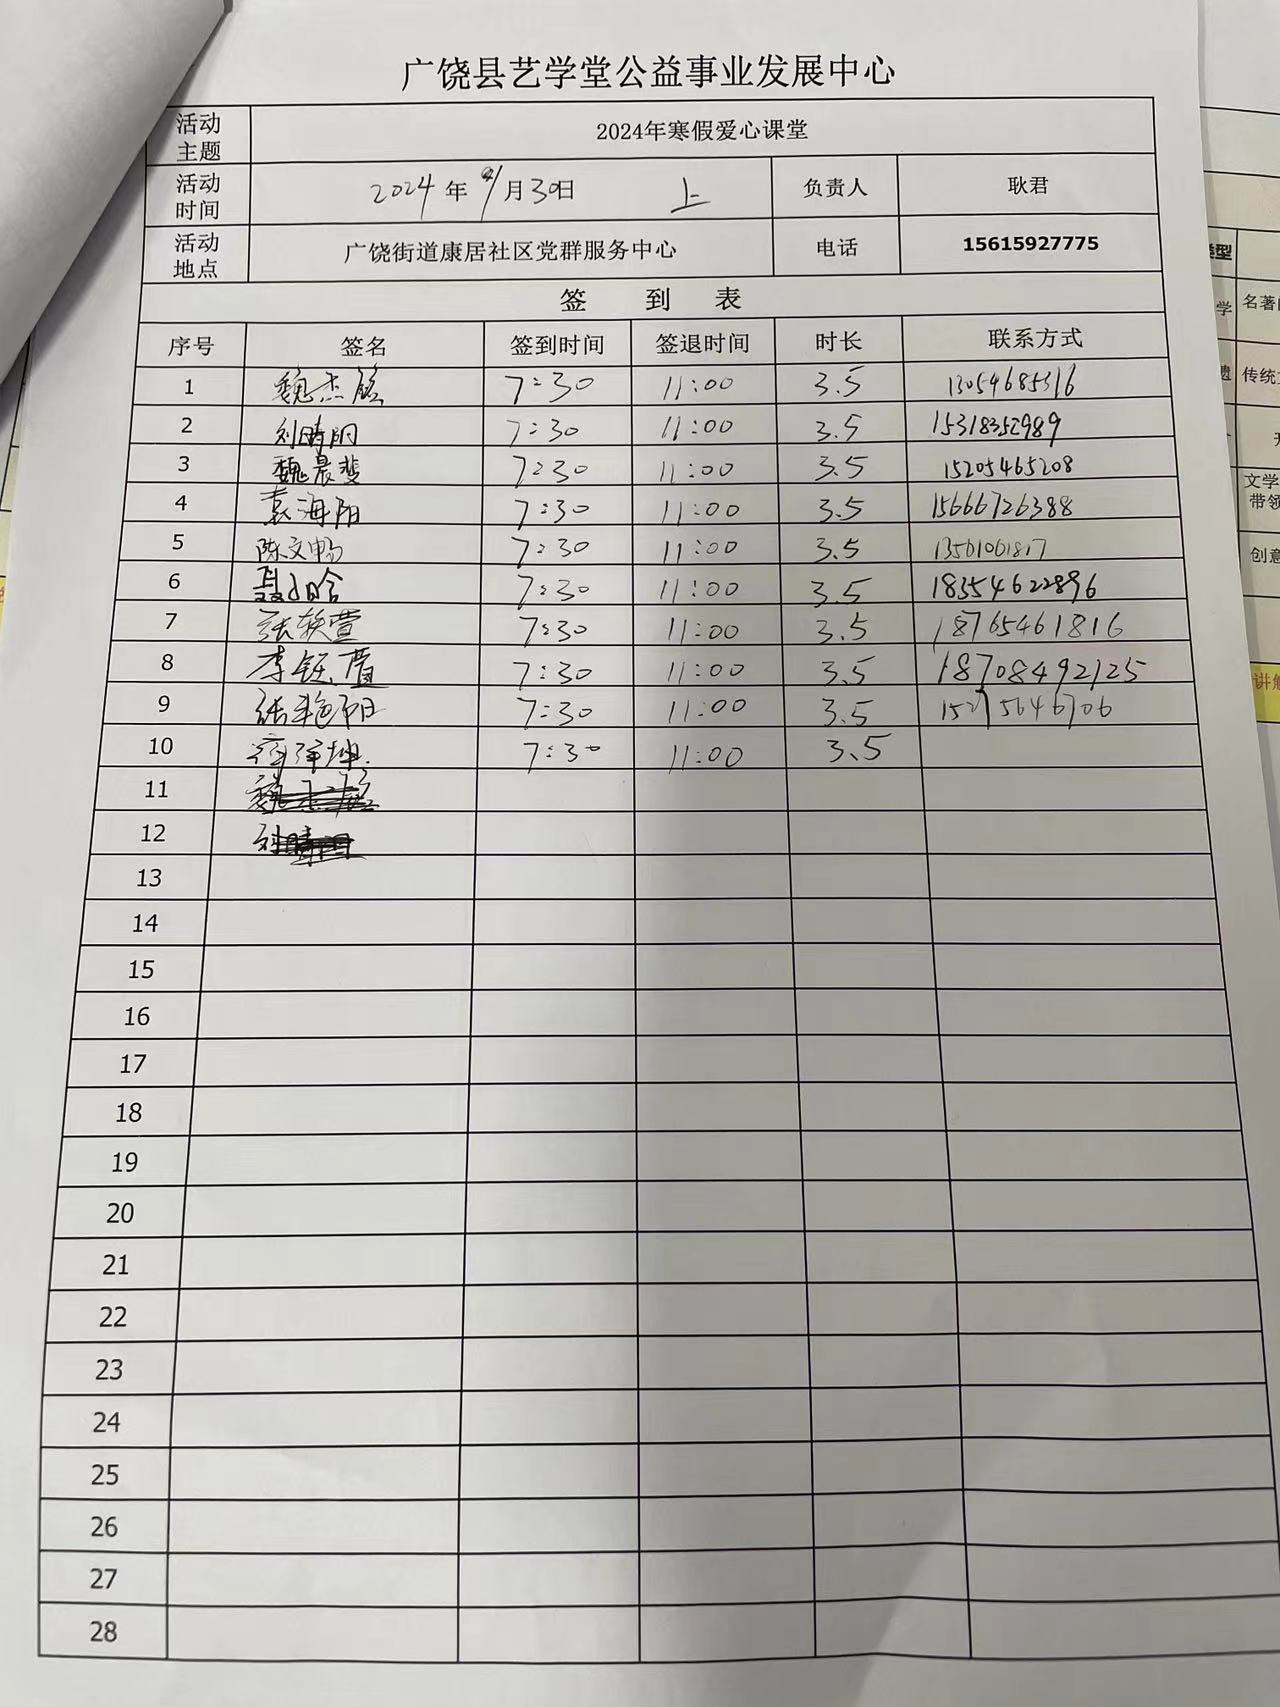 广饶县艺学堂公益事业发展中心
活动主题 2024年寒假爱心课堂
活动时间 2024年 月30日 上 负责人 耿君
活动地点 广饶街道康居社区党群服务中心 电话 15615927775
签 到 表
序号 签名 签到时间 签退时间 时长 联系方式
1 魏杰铭 7:30 11:00 3.5 13054685316
2 刘晴明 7:30 11:00 3.5 15318352989
3 魏晨斐 7:30 11:00 3.5 15205465208
4 袁海阳 7:30 11:00 3.5 15666726388
5 陈文畅 7:30 11:00 3.5
6 7:30 11:00 3.5 18354622896
7 张轶萱 7:30 11:00 3.5 18765461816
8 李钰 7:30 11:00 3.5 18708492125
9 张艳阳 7:30 11:00 3.5
10 7:30 11:00 3.5
11
12
13
14
15
16
17
18
19
20
21
22
23
24
25
26
27
28
类型
学 名著
遗 传统
文学
带领
创意
讲解